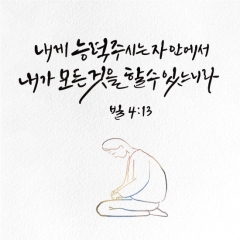 내게 능력 주시는 자 안에서
내가 모든 것을 할 수 있느니라
빌 4:13